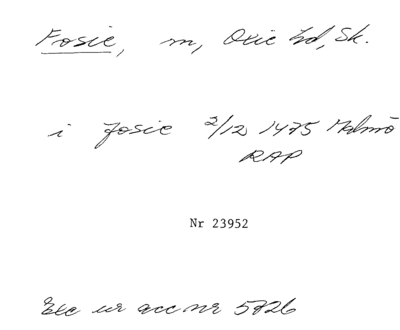 Fosie, m, Oxie hd, Sk.
i fosie 2/12 1475 Malmö
RAP
Nr 23952
Exc ur acc nr 5826